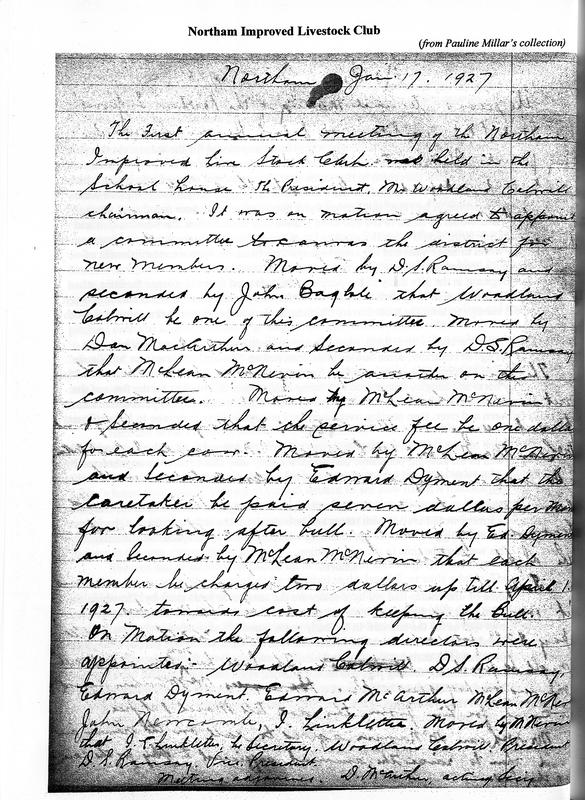 Northam Improved Livestock Club
(from Pauline Millar's collection)
Northam Jan 17. 1927
The First annual meeting of the Northam
Improved Live Stock Club was held in the
School house the President, Mr Woodland
chairman. It was on motion agreed to appoint
a committee to canvas the district for
new members. Moved by D.S. Ramsay and
seconded by John that Woodland
be one of this committee. Moved by
Dan MacArthur and seconded by D.S. Ramsay
that McLean McNevin be another on this
committee. Moved by McLean McNevin
& seconded that the service fee be one dollar
for each cow. Moved by McLean McNevin
and seconded by Edward Dyment that the
caretaker be paid seven dollars per
for looking after bull. Moved by Ed. Dyment
and seconded by McLean McNevin that each
member be charged two dollars up till April 1.
1927. towards cost of keeping the Bull.
On Motion the following directors were
appointed:- Woodland D.S. Ramsay,
Edward Dyment. Edward McArthur McLean McNev
John Newcombe, I. Linkletter. Moved by McNevin
that I. Linkletter, be Secretary. Woodland President
D.S. Ramsay Vice. President.
Meeting adjourned D. McArthur, acting Secy